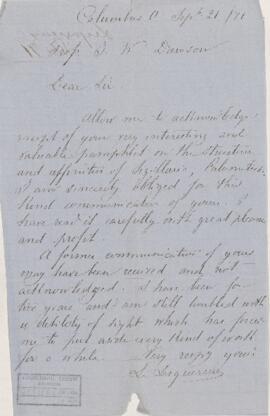 Columbus O Sept 21 / 71
Prof. J. W. Dawson
Dear Sir
Allow me to acknowledge
receipt of your very interesting and
valuable pamphlet on the structure
and affinities of Sigillaria, Calamites.
I am sincerely obliged for this
kind communication of yours. I
have read it carefully with great pleasure
and profit.
A former communication of yours
may have been received and not
acknowledged. I have been for
two years and am still troubled with
a debility of sight which has forced
me to put aside every kind of work
for a while. Very respy yours
L. Lesquereux